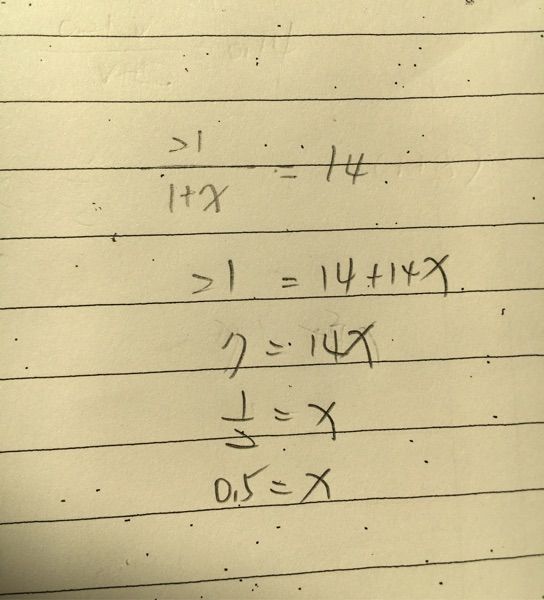 21/(1+x) = 14
21 = 14+14x
7 = 14x
1/2 = x
0.5 = x